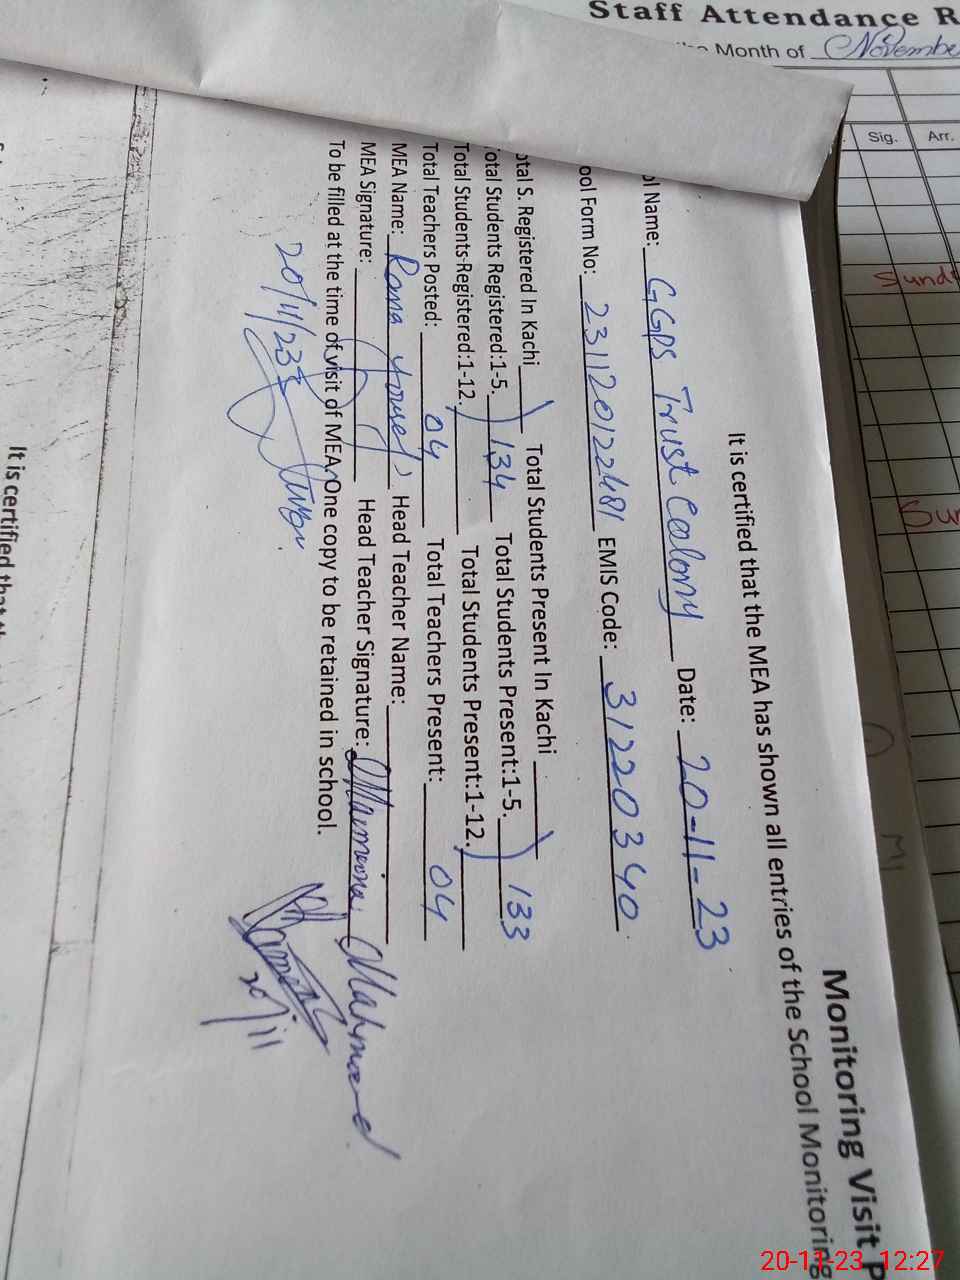 Staff Attendance R
Month of November
Sig. Arr.
Sund
Sun
Monitoring Visit P
It is certified that the MEA has shown all entries of the School Monitoring
ol Name: GGPS Trust Colony Date: 20-11-23
ool Form No: 231120122481 EMIS Code: 31220340
otal S. Registered In Kachi Total Students Present In Kachi
otal Students Registered:1-5. 134 Total Students Present:1-5. 133
Total Students-Registered:1-12. Total Students Present:1-12.
Total Teachers Posted: 04 Total Teachers Present: 04
MEA Name: Roma Yousef Head Teacher Name:
MEA Signature: Head Teacher Signature: Maimoona Mahmood
To be filled at the time of visit of MEA. One copy to be retained in school.
20/11/23
20/11
It is certified that th
20-11-23 12:27